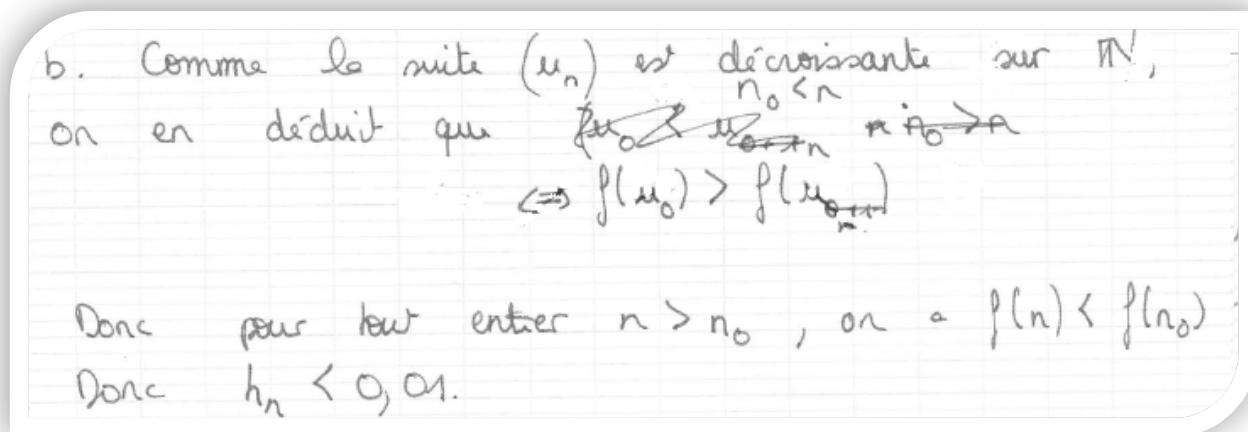 b. Comme la suite (u_n) est décroissante sur ℕ,
n_0 < n
on en déduit que
⇔ f(u_0) > f(u_n)
Donc pour tout entier n > n_0, on a f(n) < f(n_0)
Donc h_n < 0,01.